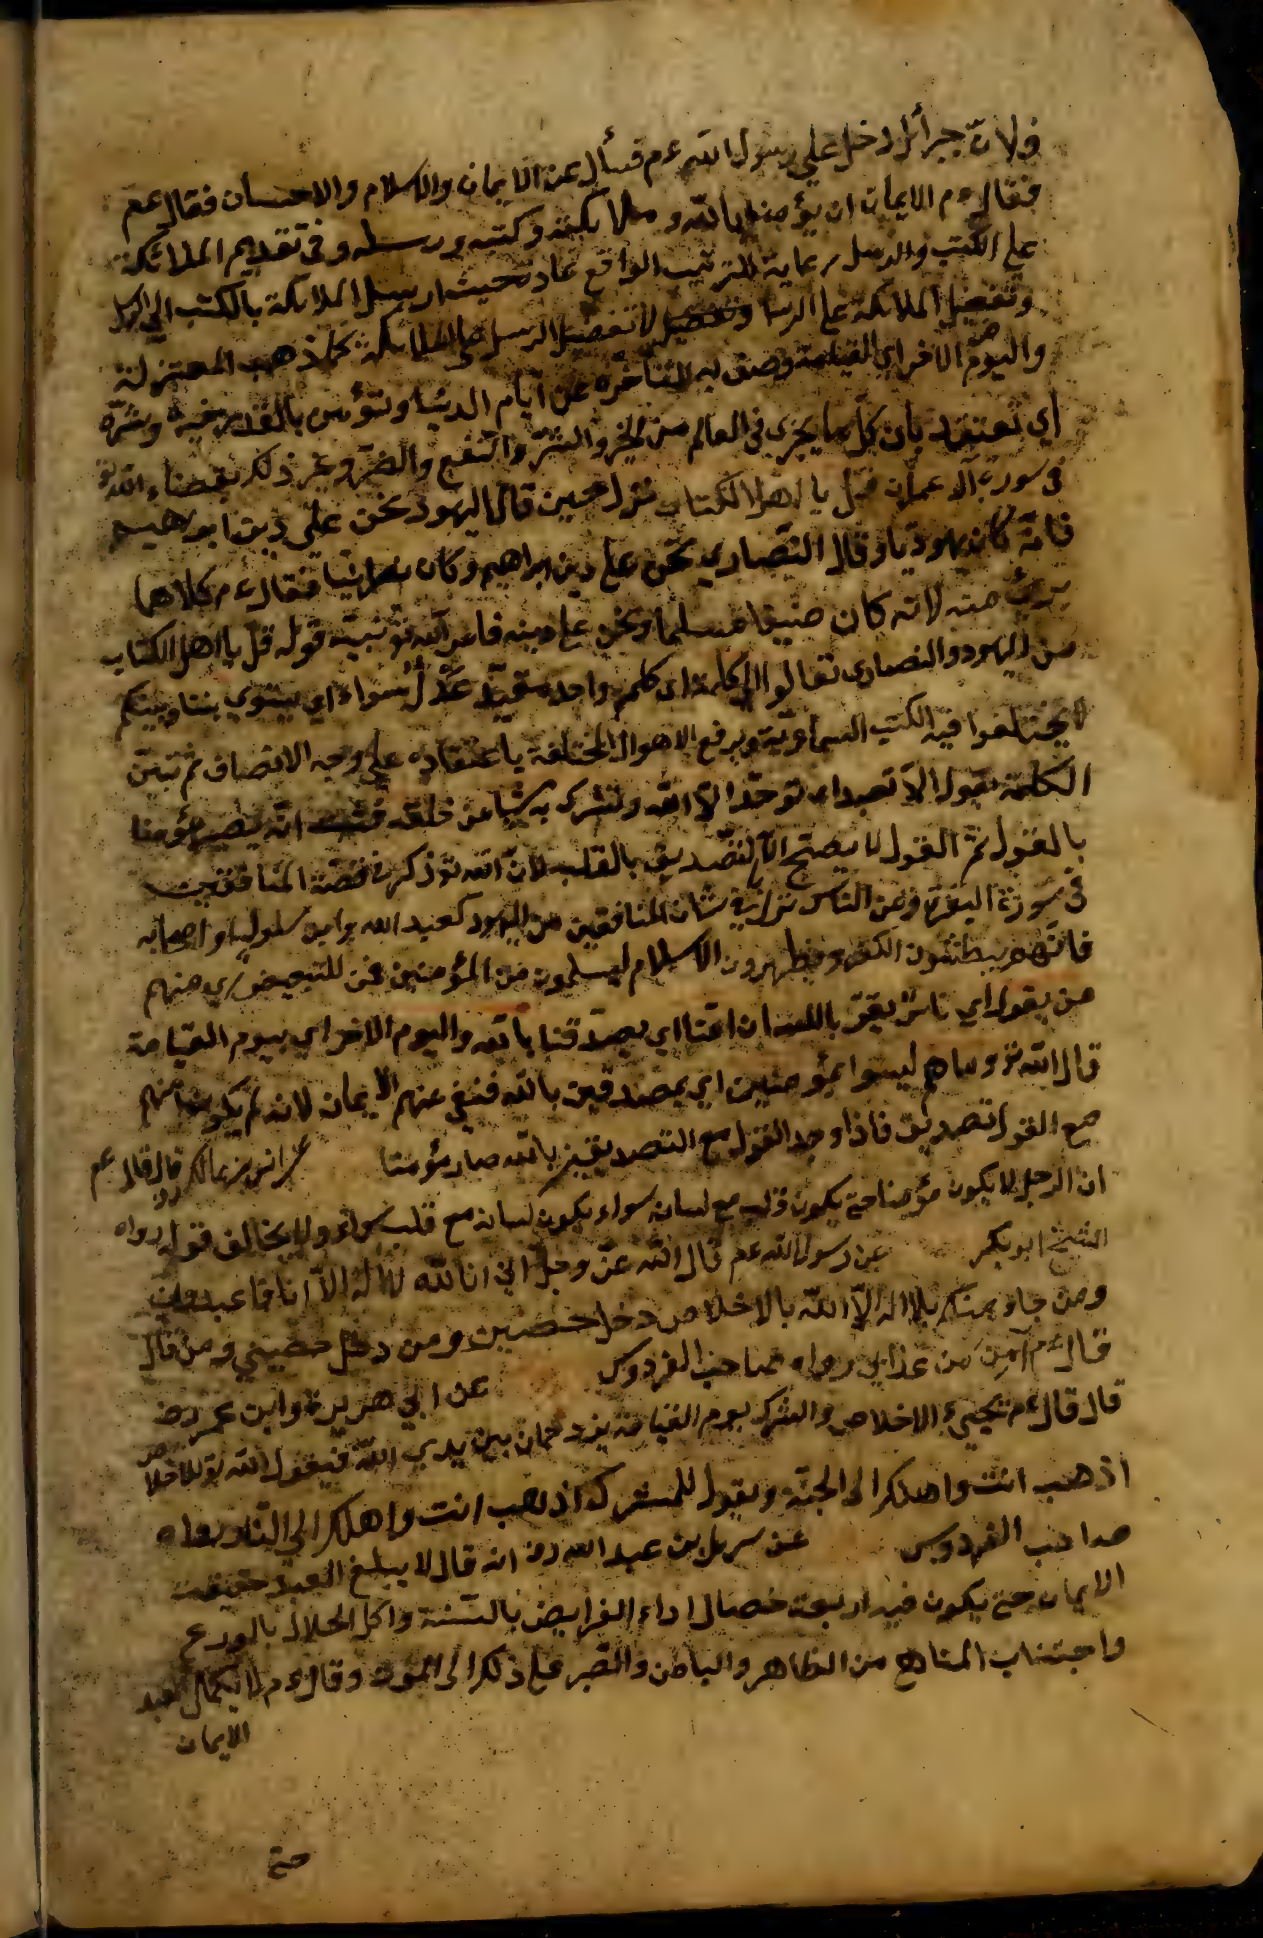 ولان جبرائل دخل على رسول الله عم فسأل عن الايمان والاسلام والاحسان فقال عم
فقال عم الايمان ان يؤمن بالله وملائكته وكتبه ورسله وفي تقديم الملائكة
على الكتب والرسل رعاية للترتيب الواقع عادة حيث ارسل الملائكة بالكتب الى الرسل
وتفضيل الملائكة على الرسل لا تفضيل الرسل على الملائكة كما ذهب المعتزلة
واليوم الاخر اي القيامة وصف به لتأخره عن ايام الدنيا وتؤمن بالقدر خيره وشره
اي تعتقد بان كل ما يجري في العالم من الخير والشر والنفع والضر وغير ذلك بقضاء الله تع
في سورة آل عمران قل يا اهل الكتاب نزل حين قال اليهود نحن على دين ابراهيم
فانه كان يهوديا وقال النصارى نحن على دين ابراهيم وكان نصرانيا فقال عم كلاهما
برئ منه لانه كان حنيفا مسلما ونحن على دينه فامر الله تع نبيه قوله قل يا اهل الكتاب
من اليهود والنصارى تعالوا الى كلمة اي كلمة واحدة عدل سواء اي يستوي بيننا وبينكم
لا يختلفوا فيه الكتب السماوية ويرفع الاهواء المختلفة باعتقاده على وجه الانصاف ثم تبين
الكلمة بقوله الا نعبد اي نوحد الا الله ولا نشرك به شيأ من خلقه فثبت انه يصير مؤمنا
بالقول ثم القول لا يصح الا بالتصديق بالقلب لان الله تع ذكر في قصة المنافقين
في سورة البقرة ومن الناس نزل في شان المنافقين من اليهود كعبد الله بن ابي سلول واصحابه
فانهم يبطنون الكفر ويظهرون الاسلام ليسلمون من المؤمنين فمن للتبعيض اي منهم
من يقول اي ناس يقر باللسان امنا اي بصدقنا بالله واليوم الاخر اي بيوم القيامة
قال الله تع وما هم ليسوا بمؤمنين اي بمصدقين بالله فنفى عنهم الايمان لانه لم يكن منهم
مع القول تصديق فاذا وجد القول مع التصديق بالله صار مؤمنا عن انس بن مالك رض قال قال عم
ان الرجل لا يكون مؤمنا حتى يكون قلبه مع لسانه سواء يكون لسانه مع قلبه سواء ولا يخالف قوله رواه
الشيخ ابو بكر عن رسول الله عم قال الله عز وجل اني انا الله لا اله الا انا فاعبدون
ومن جاء منكم بلا اله الا الله بالاخلاص دخل حصني ومن دخل حصني ومن قال
قال عم آمن من عذابي رواه صاحب الفردوس عن ابي هريرة وابن عمر رض
قال قال عم يجيئ الاخلاص والشرك يوم القيامة يزدحمان بين يدي الله فيقول الله تع للاخلاص
اذهب انت واهلك الى الجنة ويقول للشرك اذهب انت واهلك الى النار رواه
صاحب الفردوس عن سهل بن عبد الله رض انه قال لا يبلغ العبد حقيقة
الايمان حتى يكون فيه اربعة خصال اداء الفرايض بالسنة واكل الحلال بالورع
واجتناب المناهي من الظاهر والباطن والصبر على ذلك الى الموت وقال عم لا يكمل العبد
الايمان
حتى